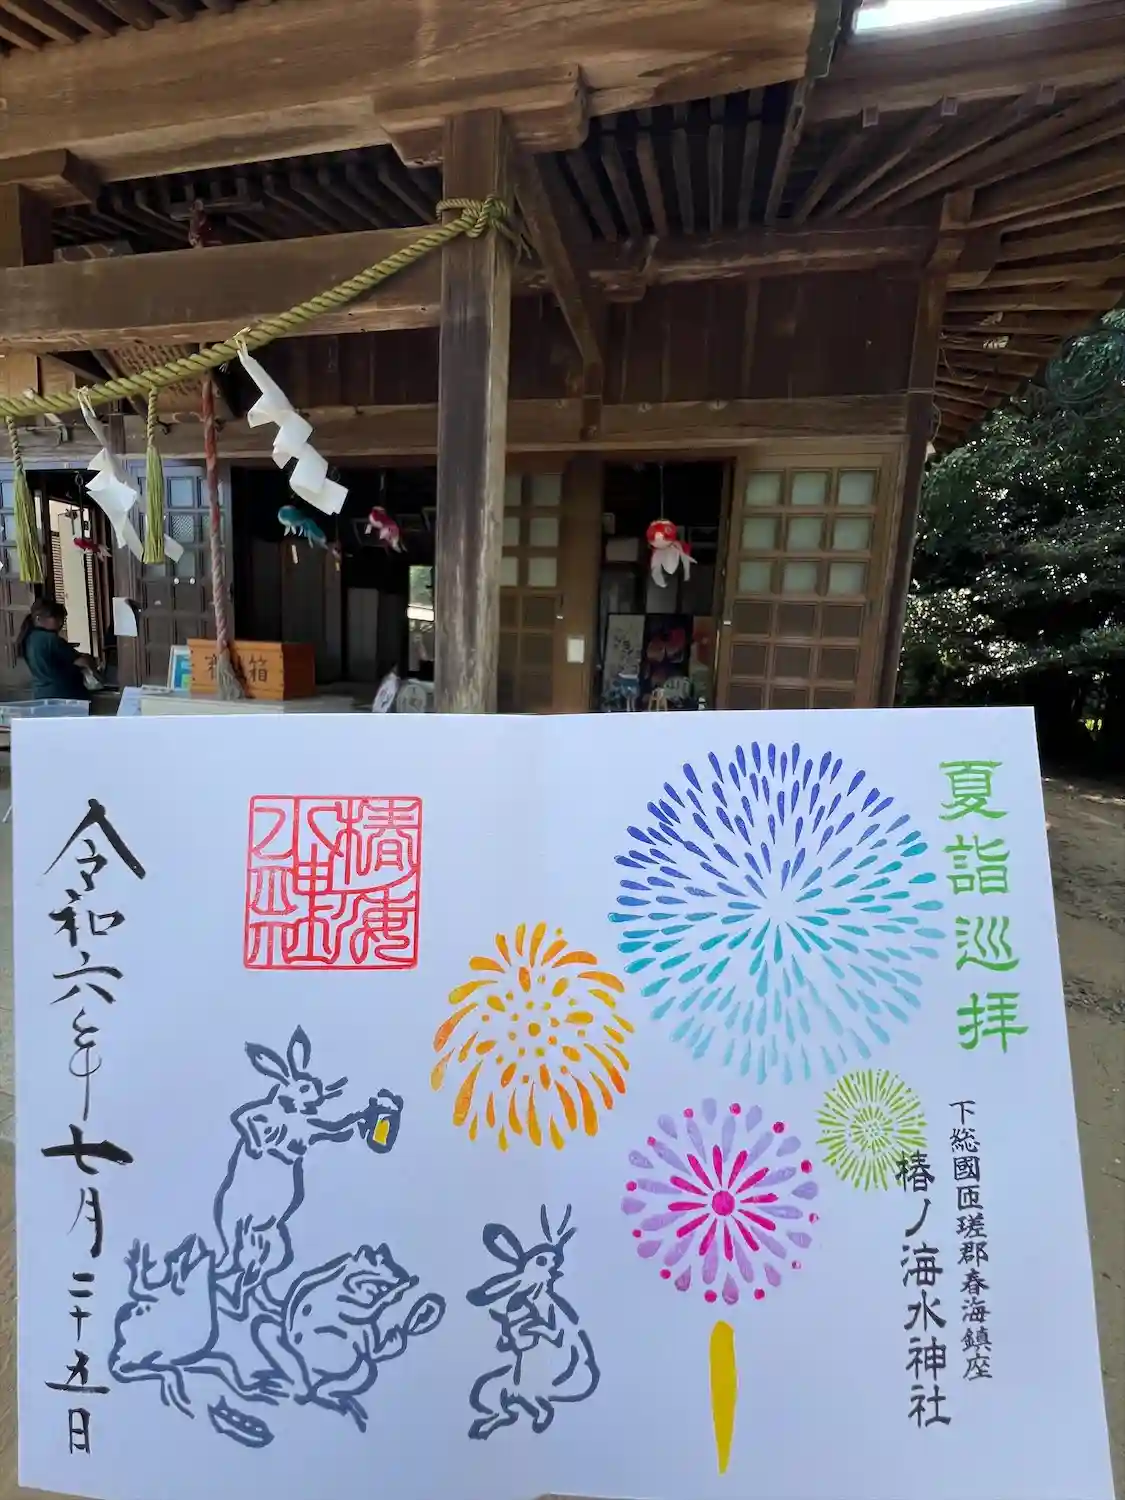 賽銭箱
夏詣巡拝
下総國匝瑳郡春海鎮座
椿ノ海水神社
椿海
水神社
令和六年七月二十五日